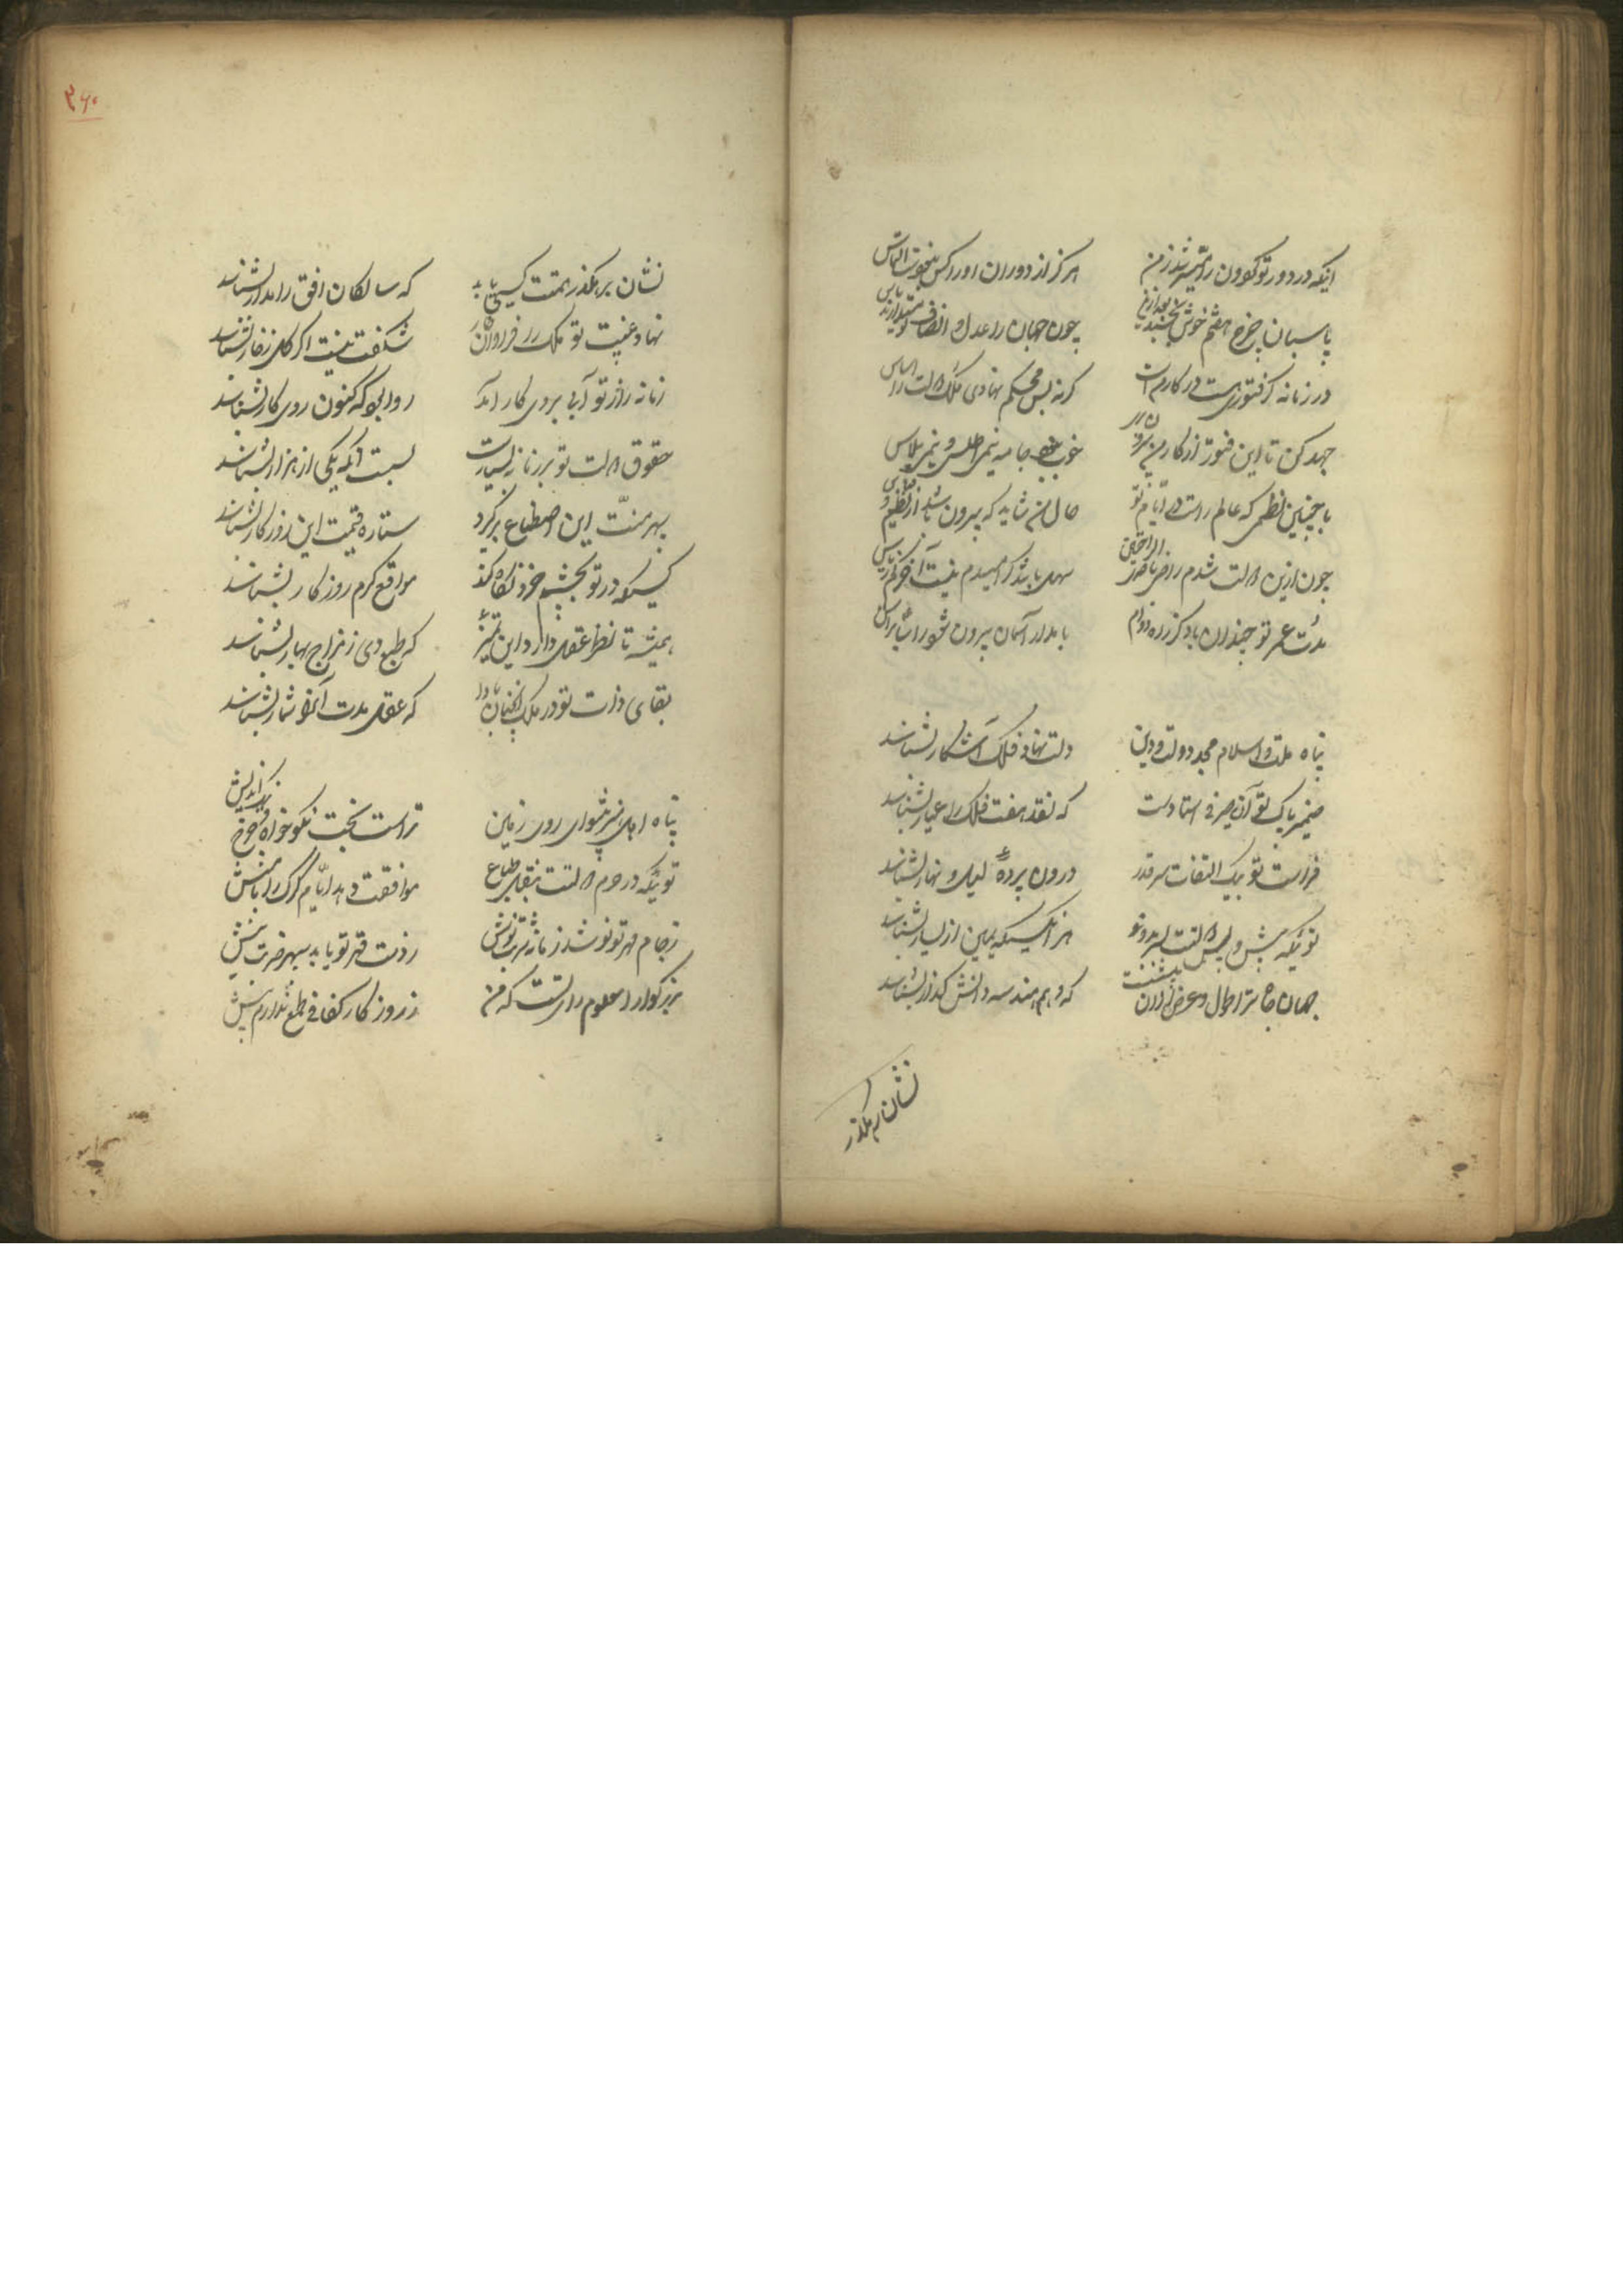 ایکه در دور تو گردون را میسر شد ز من
هرکز از دوران او را کس نبود التماس
پاسبان چرخ هفتم خوش بخسبد بعد ازین
چون جهان را عدل و انصاف تو میدارند پاس
در زمانه کر فتوری هست در کار منست
کرنه بس محکم نهادی ملک و ملت را اساس
جهد کن تا این فتور از کار من بیرون بری
خوب نبود جامه نیمی اطلس و نیمی پلاس
با چنین نظمی که عالم راست در ایام تو
حال من شاید که بیرون باشد از نظم و قیاس
چون ازین دولت شدم راضی براس
سهل باشد کر امیدم نیست آخر کم ز یاس
مدت عمر تو چندان باد کز راه دوام
با مدار آسمان بیرون شود راسا براس
پناه ملت و اسلام مجد دولت و دین
دلت نهان فلک آشکار بشناسد
ضمیر پاک تو آن صیرفی استادست
که نقد هفت فلک را عیار بشناسد
فراست تو بیک التفات سر قدر
درون پرده لیل و نهار بشناسد
توئیکه پیش و پس
هر آنکسیکه یمین از یسار بشناسد
جهان جاه ترا طول و عرض
که وهم هندسه دانش کذار بشناسد
نشان رهکذر
نشان رهکذر همتت کسی یابد
که سالکان افق را مدار بشناسد
نهاد غیبت تو ملک را فراوان خار
شکفت نیست اکر کل ز خار بشناسد
زمانه را ز تو آبی بروی کار آمد
روا بجو که کنون روی کار بشناسد
حقوق دولت تو بر زمانه بسیارست
بست آنکه یکی از هزار بشناسد
سپهر منت این اصطناع برگیرد
ستاره قیمت این روزکار بشناسد
کسیکه در تو بچشم خرد نکاه کند
مواقع کرم روزکار بشناسد
همیشه تا نظر عقل دارد این تمییز
که طبع دی ز مزاج بهار بشناسد
بقای ذات تو در ملک آنچنان بادا
که عقل مدت آنرا شمار بشناسد
پناه اهل هنر پیشوای روی زمین
تراست بخت نکوخواه و چرخ نیک اندیش
توئیکه در حرم دولتت بنقل طباع
موافقت دهد ایام کرک را با میش
ز جام مهر تو نوشد زمانه شربت نوش
ز دست قهر تو یابد سپهر ضربت نیش
بزرکوارا معلوم رای تست که من
ز روزکار کفافی طمع ندارم بیش
۳۶۰